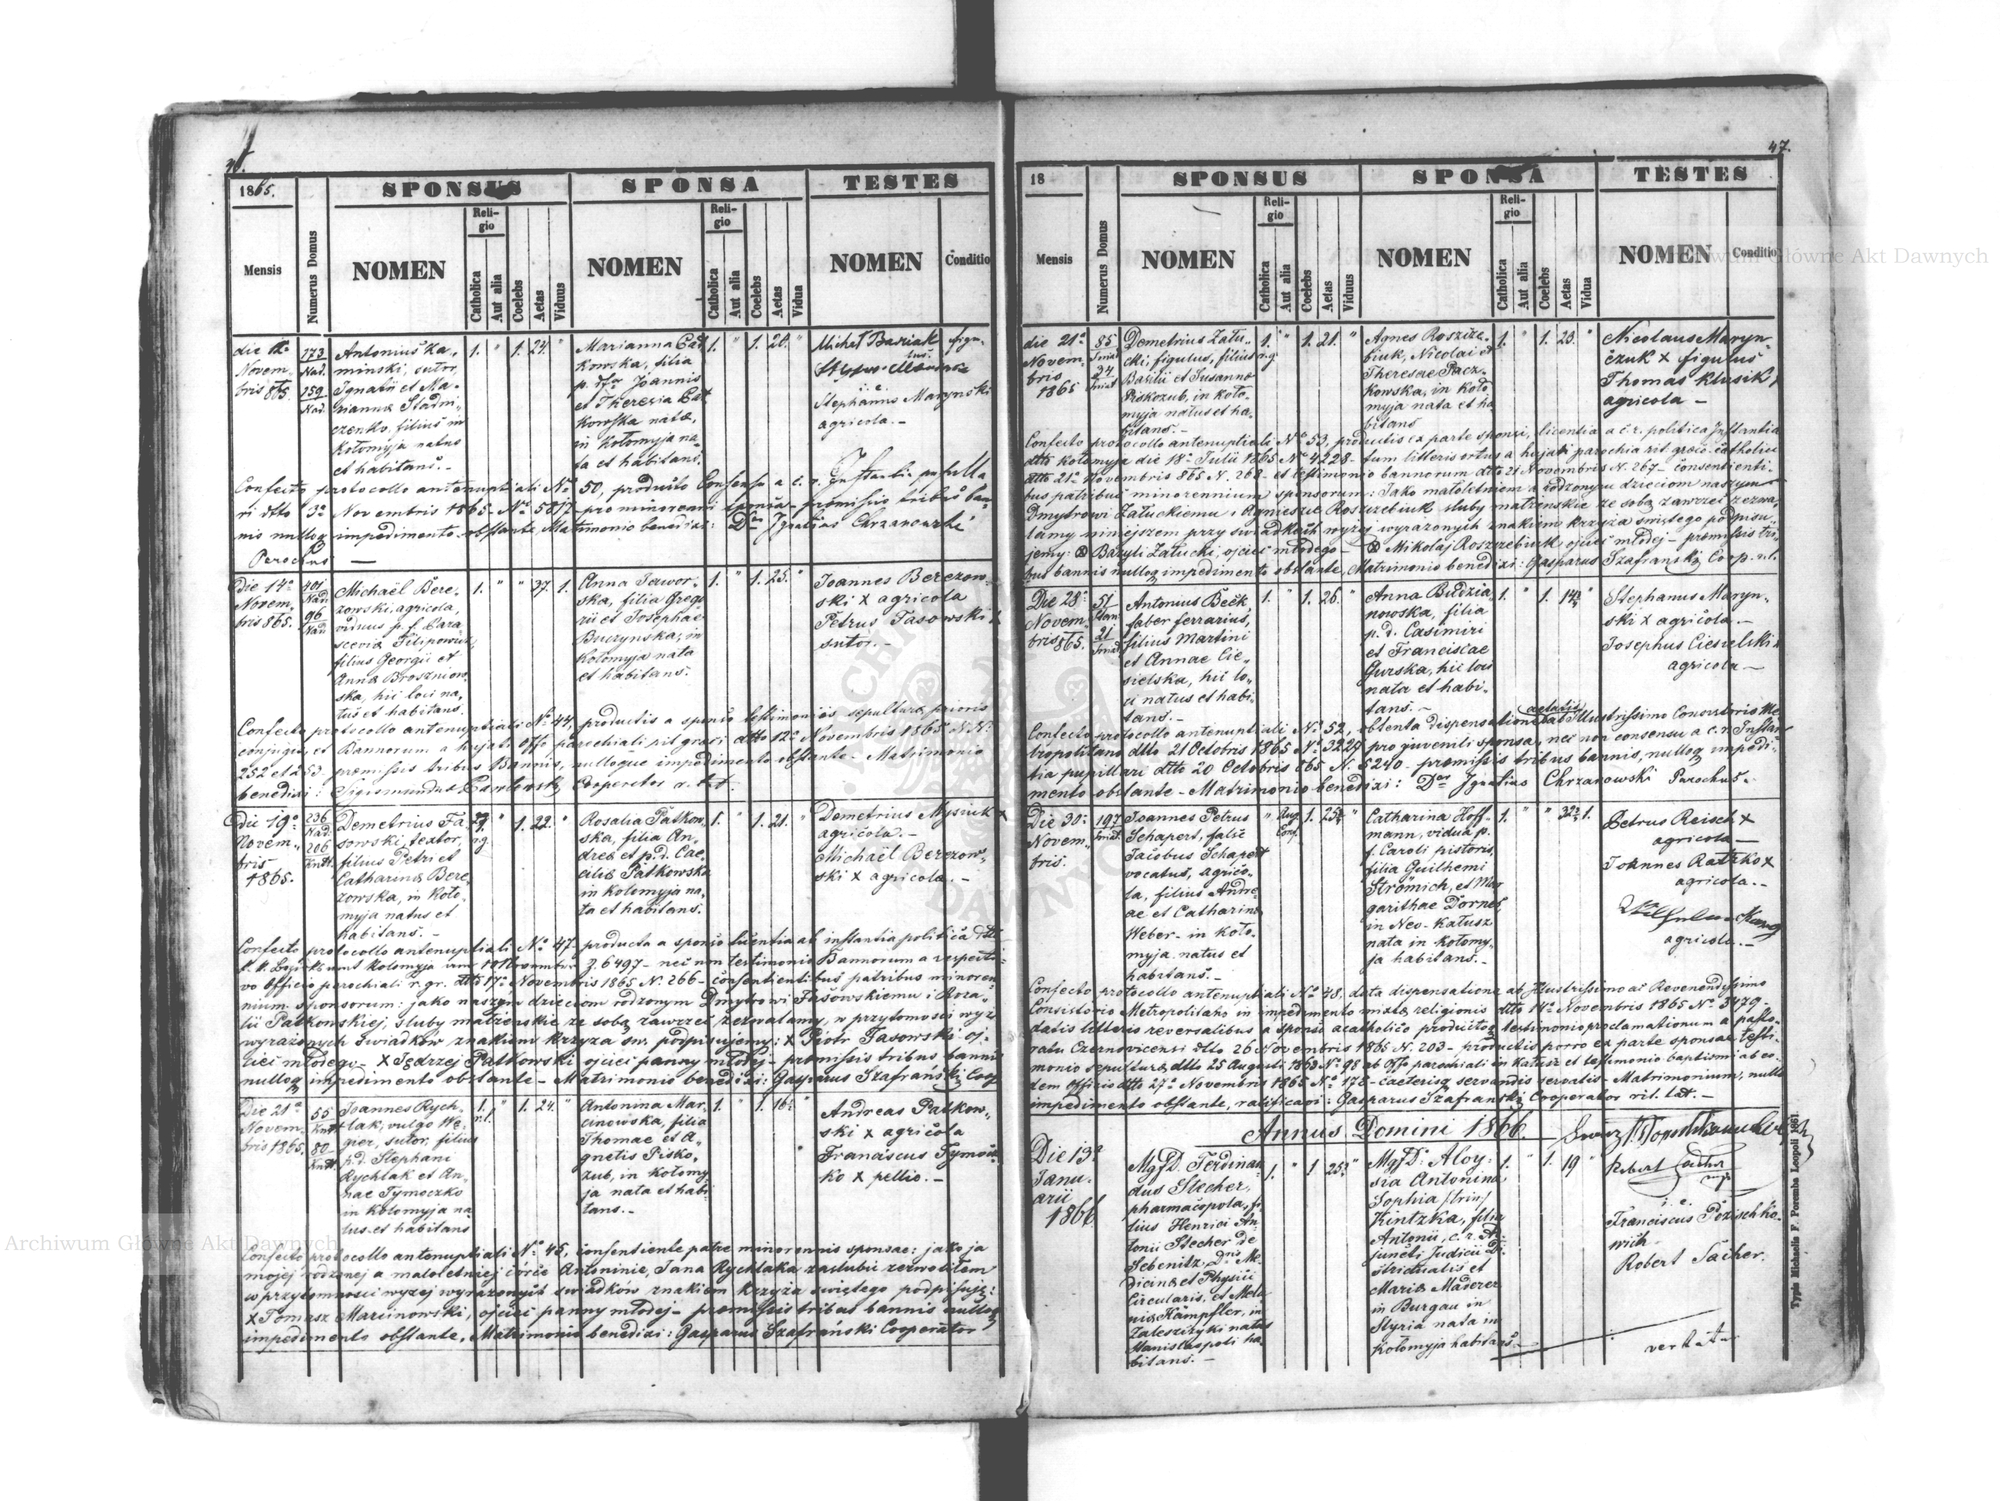 47.
1865.
SPONSUS
SPONSA
TESTES
Mensis
Numerus Domus
NOMEN
Religio
Catholica
Aut alia
Coelebs
Aetas
Viduus
NOMEN
Religio
Catholica
Aut alia
Coelebs
Aetas
Vidua
NOMEN
Conditio
die
Novem-
bris 865.
173
Nad.
259
Nad.
Antonius Ka-
minski, sutor,
Ignatii et Ma-
rianna Stadni-
czenko, filius in
Kołomyja natus
et habitans.-
1. " 1. 24. "
Marianna
kowska, filia
p. d. Joannis
et Theresia
kowska nata,
in Kołomyja na-
ta et habitans.
1. " 1. 20. "
Michał Basiak
i. e.
Stephanus Marynski
agricola.-
Confecto protocollo antenuptiali No 50, producto Consensu a c. r. Instantia pupilla
ri dtto 3a Novembris 1865 No 5217 pro minorenni sponsa- praemissis tribus ban-
nis nulloq impedimento obstante Matrimonio benedixi: Dus Ignatius Chrzanowski
Parochus
Die 14a
Novem-
bris 865.
401
Nad
96
Nad
Michaël Bere-
zowski agricola,
viduus p. f. Para
scevia Filipowicz,
filius Georgii et
Anna Broszniow-
ska, hic loci na-
tus et habitans.
1. " " 37. 1.
Anna Jawor-
ska, filia Grego
rii et Josephae
Buczynska, in
Kołomyja nata
et habitans.
1. " 1. 25. "
Joannes Berezow-
ski x agricola
Petrus Tasowski x
sutor.-
Confecto protocollo antenuptiali No 44, productis a sponso testimoniis sepultura prioris
conjugis et Bannorum a hujate Offo parochiali rit graci dtto 12a Novembris 1865 N. N.
252 et 253 praemissis tribus Bannis, nulloque impedimento obstante- Matrimonio
benedixi: Sigismundus Cooperator r. l.
Die 19a
Novem-
bris
1865.
236
Nad.
206
Demetrius Ta-
sowski, textor,
filius Petri et
Catharina Bere-
zowska, in Koło-
myja natus et
habitans.-
r.g. " 1. 22. "
Rosalia Patkow-
ska, filia An-
drea et p.d. Cae-
cilia Patkowska
in Kołomyja na-
ta et habitans.
1. " 1. 21. "
Demetrius Mysiuk x
agricola.-
Michaël Berezow-
ski x agricola.-
Confecto protocollo antenuptiali No 47- producta a sponso licentia ab instantia politica dtto
Kołomyja Z. 6497- nec non testimonio Bannorum a respecti-
vo Officio parochiali r. gr. dtto 17a Novembris 1865 N. 266- consentientibus patribus minoren-
nium sponsorum: jako naszym dzieciom rodzonym Dmytrowi Tasowskiemu i Roza-
lii Patkowskiej, śluby małżeńskie ze sobą zawrzeć zezwalamy, w przytomości wyż
wyrażonych świadków znakiem krzyża św. podpisujemy: x Piotr Tasowski oj-
ciec młodego- x Jędrzej Patkowski ojciec panny młodej- praemissis tribus bannis
nulloq impedimento obstante- Matrimonio benedixi: Gasparus Szafrański Coop
Die 21a
Novem-
bris 1865.
55
80
Joannes Rych-
lak, vulgo We-
gier, sutor, filius
p.d. Stephani
Rychlak et An-
nae Tymoczko
in Kołomyja na
tus et habitans
1. r.l. " 1. 24. "
Antonina Mar-
cinowska, filia
Thomae et A-
gnetis Pisko-
zub, in Kołomy-
ja nata et habi-
tans.-
1. " 1. 16.
Andreas Patkow-
ski x agricola
Franciscus Tymocz-
ko x pellio.-
Confecto protocollo antenuptiali No 45, consentiente patre minorennis sponsae: jako ja
mojej rodzonej a małoletniej córce Antoninie, Jana Rychlaka zaślubić zezwoliłem
w przytomności wyżej wyrażonych świadków znakiem krzyża świętego podpisuję:
x Tomasz Marcinowski, ojciec panny młodej- praemissis tribus bannis nulloq
impedimento obstante, Matrimonio benedixi: Gasparus Szafrański Cooperator
18
SPONSUS
SPONSA
TESTES
Mensis
Numerus Domus
NOMEN
Religio
Catholica
Aut alia
Coelebs
Aetas
Viduus
NOMEN
Religio
Catholica
Aut alia
Coelebs
Aetas
Vidua
NOMEN
Conditio
die 21a
Novem-
bris
1865
85
34
Demetrius Zału-
cki, figulus, filius
Basilii et Susanna
Piskozub, in Koło-
myja natus et ha-
bitans.-
1. r.g. " 1. 21. "
Agnes Roszcze-
biuk, Nicolai et
Theresiae Pacz-
kowska, in Koło
myja nata et ha
bitans
1. " 1. 23. "
Nicolaus Maryn-
czuk x figulus
Thomas Klusik x
agricola-
Confecto protocollo antenuptiali No 53, productis ex parte sponsi, licentia a c. r. politica Instantia
dtto Kołomyja die 18a Julii 1865 No 4228- tum litteris ortus a hujati parochia rit. graeco catholici
dtto 21a Novembris 865 N. 268- et testimonio bannorum dtto 21 Novembris N. 267- consentienti-
bus patribus minorennium sponsorum: Jako małoletniem a rodzonym dzieciom naszym
Dmytrowi Załuckiemu i Agnieszce Roszczebiuk śluby małżeńskie ze sobą zawrzeć zezwa-
lamy niniejszem przy świadkach wyżej wyrażonych znakiem krzyża świętego podpisu-
jemy: x Bazyli Załucki, ojciec młodego- x Mikołaj Roszczebiuk ojciec młodej- praemissis tri-
bus bannis nulloq impedimento obstante, Matrimonio benedixi: Gasparus Szafrański Coop. r. l.
Die 28a
Novem-
bris 865.
51
21
Antonius Beck,
faber ferrarius,
filius Martini
et Annae Cie-
sielska, hic lo-
ci natus et habi-
tans.-
1. " 1. 26. "
Anna Budzia-
nowska, filia
p. d. Casimiri
et Franciscae
Gurska, hic loci
nata et habi-
tans.-
1. " 1. 14 "
Stephanus Maryn-
ski x agricola.-
Josephus Ciesielski x
agricola-
Confecto protocollo antenuptiali No 52, obtenta dispensatione aetatis ab Illustrissimo Consistorio Me-
tropolitano dtto 21 Octobris 1865 No 3229 pro juvenili sponsa, nec non consensu a c. r. Instan-
tia pupillari dtto 20 Octobris 865 N. 5240- praemissis tribus bannis, nulloq impedi-
mento obstante- Matrimonio benedixi: Dus Ignatius Chrzanowski Parochus.-
Die 30a
Novem-
bris.
197
Joannes Petrus
Schapert, falsè
Jacobus Schapert
vocatus, agrico-
la, filius Andre-
ae et Catharina
Weber- in Koło-
myja natus et
habitans.-
" Aug. Conf. 1. 25 "
Catharina Hoff-
mann, vidua p.
f. Caroli pistoris,
filia Guilhelmi
Strömich, et Mar
garithae Dornes,
in Neo-Kałusz
nata in Kołomy-
ja habitans.-
1. " " 32 1.
Petrus Reisch x
agricola-
Johannes Ratzko x
agricola.-
Wilhelm
agricola.-
Confecto protocollo antenuptiali No 48, data dispensatione ab Illustrissimo ac Reverendissimo
Consistorio Metropolitano in impedimento mixtae religionis dtto 14a Novembris 1865 No 3479-
datis litteris reversalibus a sponso acatholico productoq testimonio proclamationum a pasto-
ratu Czernovicensi dtto 26 Novembris 1865 N. 203- productis porro ex parte sponsae testi-
monio sepultura, dtto 25 Augusti 1863 No 98 ab Offo parochiali in Kałusz et testimonio baptismi ab eo-
dem Officio dtto 27a Novembris 1865 No 178- caeterisq servandis servatis- Matrimonium, nullo
impedimento obstante, ratificavi: Gasparus Szafrański Cooperator rit. lat.-
Annus Domini 1866.
Die 13a
Janu-
arii
1866
MgfD. Ferdinan-
dus Stecher,
pharmacopola, fi-
lius Henrici An-
tonii Stecher de
Sebenitz, Dris Me-
dicina et Physici
Circularis, et Mela-
nia Hämpfler, in
Zaleszczyki natus
Stanislaopoli ha-
bitans.-
1. " 1. 25 "
MgfD. Aloy-
sia Antonina
Sophia (trin)
Kintzka, filia
Antonii, c. r. Ad-
juncti Judicii Di-
strictualis et
Maria Maderer
in Burgau in
Styria nata in
Kołomyja habitans.-
1. " 1. 19 "
Robert Sacher
mp
i. e.
Franciscus
wich
Robert Sacher.
vertat-
Typis Michaelis F. Poremba Leopoli 1861.
Archiwum Główne Akt Dawnych
Archiwum Główne Akt Dawnych